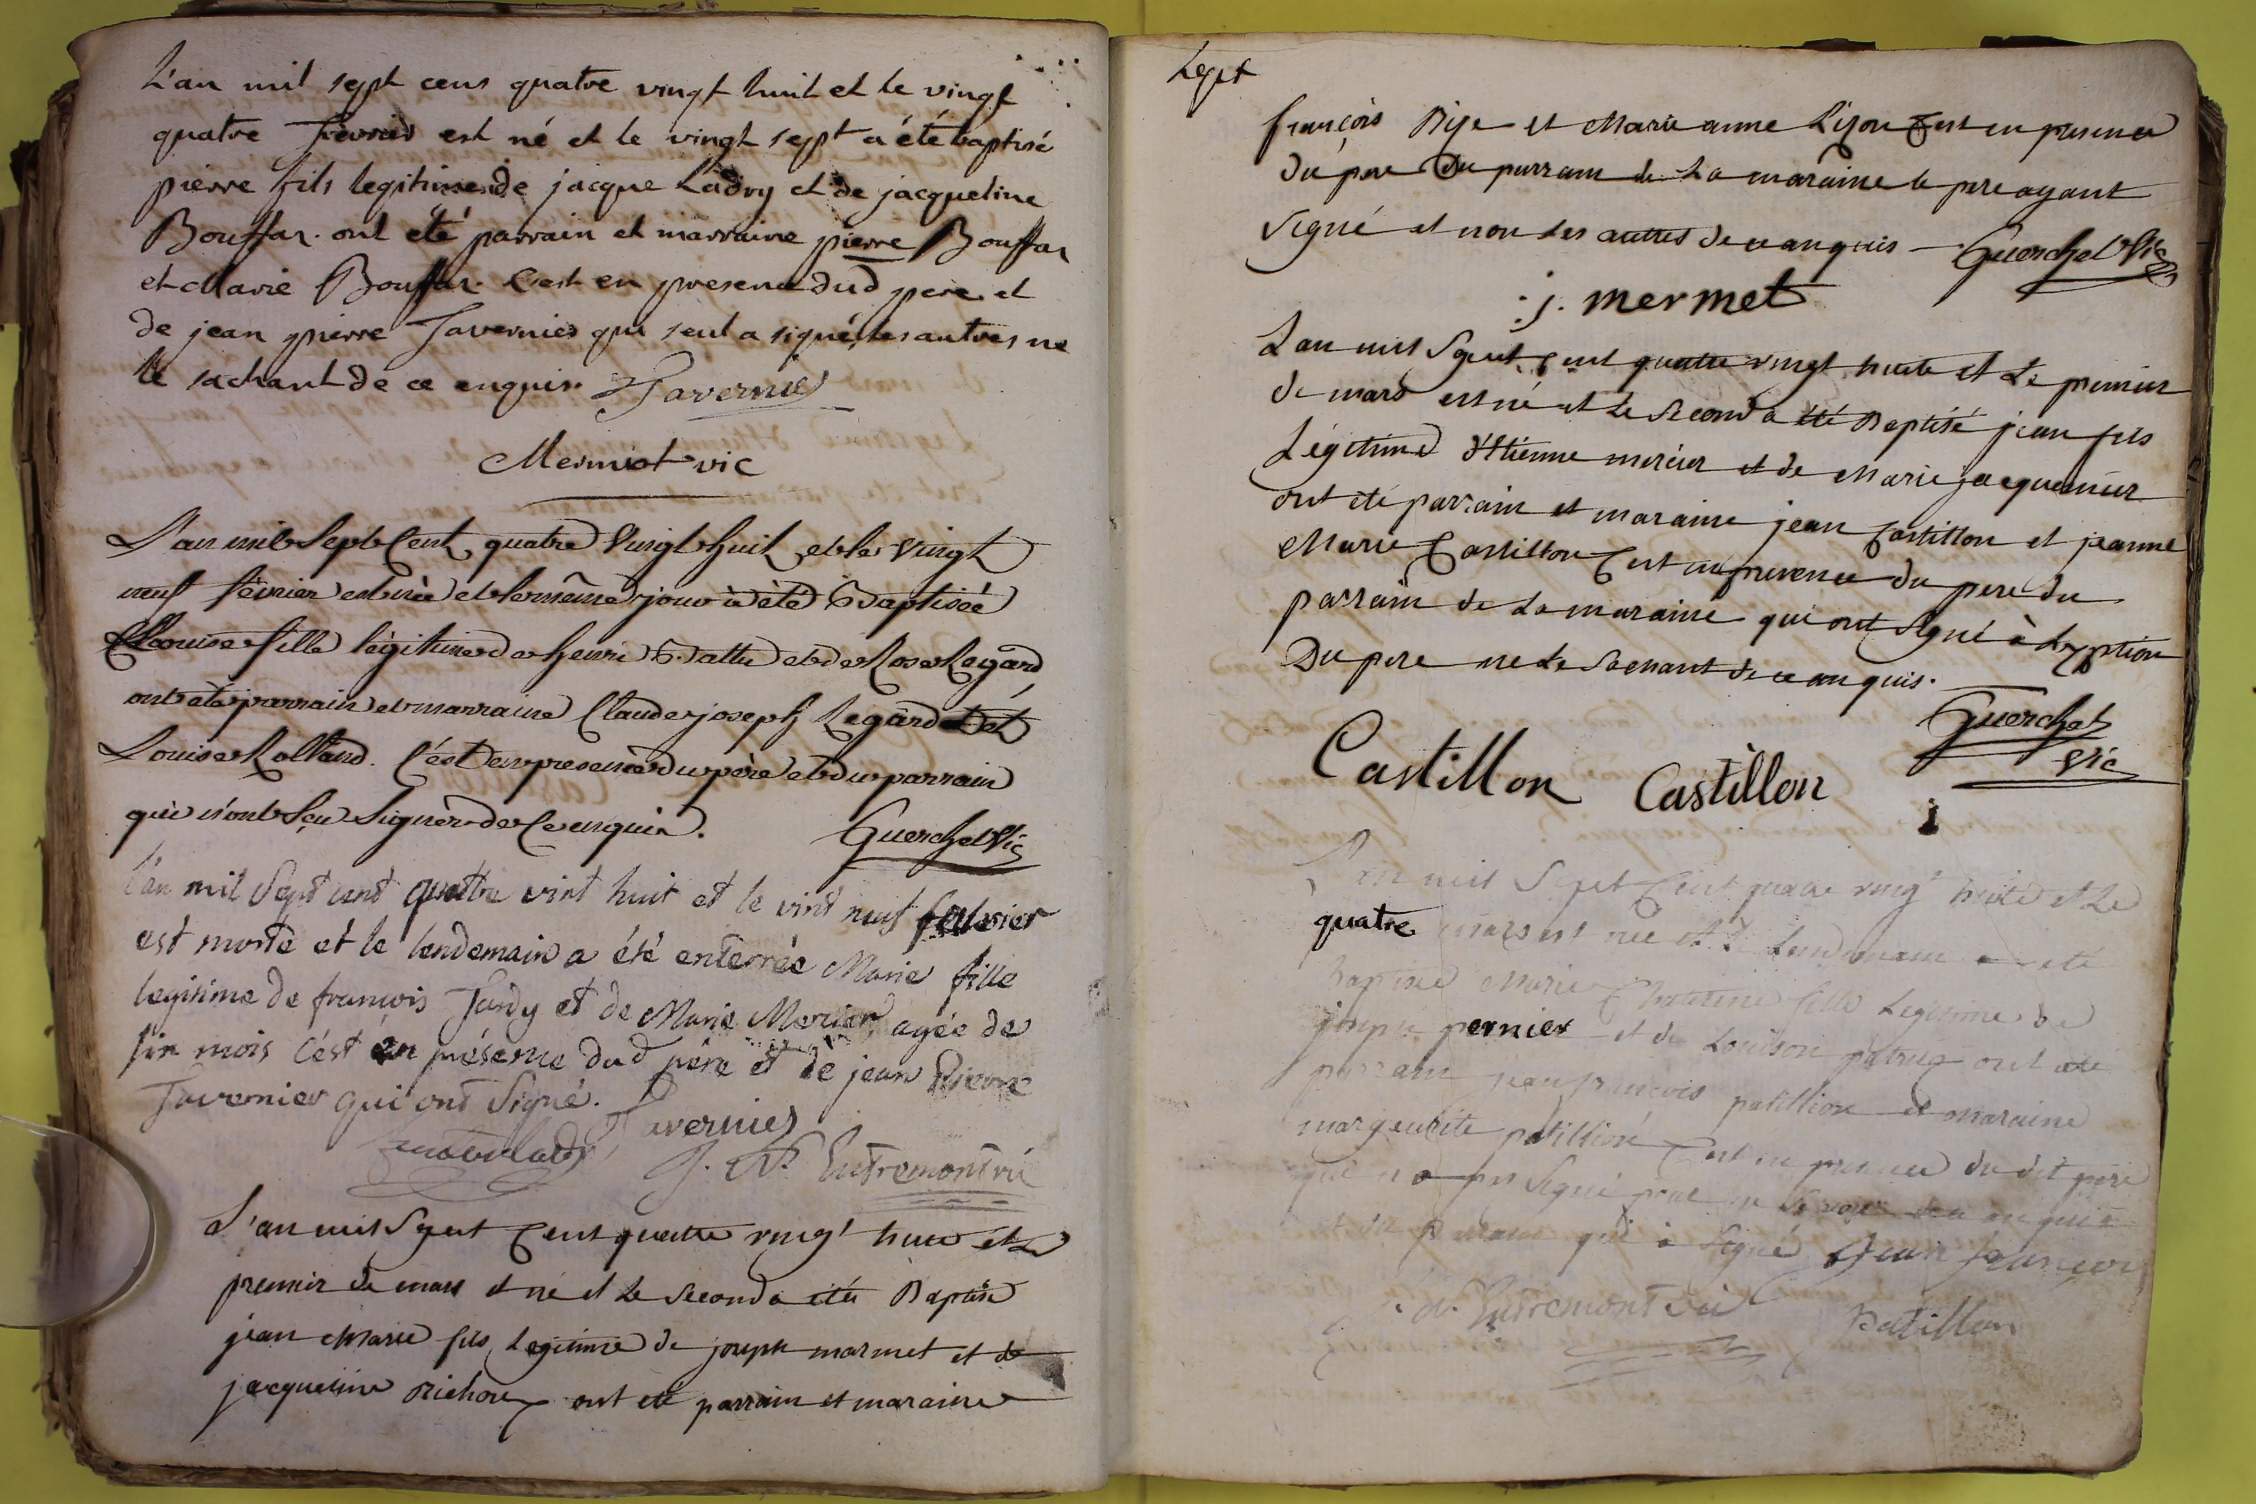 L'an mil sept cens quatre vingt huit et le vingt
quatre Fevrier est né et le vingt sept a été baptisé
pierre fils legitime de jacque Ladvy et de jacqueline
Bouffar. ont eté parrain et marraine pierre Bouffar
et Marie Bouffar. C'est en presence dud pere et
de jean pierre Tavernier qui seul a signé, les autres ne
le sachant de ce enquis. Tavernier
Mermiot vic
L'an mil Sept Cent quatre Vingt huit et le Vingt
neuf fevrier est née et le même jour à été Baptisée
Louise fille légitime de henri Battu et de Rose Regard
ont été parrain et marraine Claude joseph Regard et
Louise Rolland. C'est en presence du père et du parrain
qui n'ont Sçu Signer de Ce enquis. Guerchet Vic
L'an mil Sept cent quatre vint huit et le vint neuf fevrier
est morte et le lendemain a été enterrée Marie fille
legitime de francois Tardy et de Marie Mercier agée de
six mois C'est en présence dud père et de jean Pierre
Tavernier qui ont Signé.
Tavernier
J. N. Entremont vic
L'an mil Sept Cent quatre vingt huit et Le
premier de mars et né et Le Second a été Baptisé
jean Marie fils Legitime de joseph marmet et de
jacqueline Richon ont été parrain et maraine
francois et Marie anne C'est en presence
du pere du parrain de La maraine le pere ayant
Signé et non Les autres de ce anquis Guerchet Vic
j. mermet
L'an mil Sept Cent quatre vingt huite et Le premier
de mars est né et Le Second a été Baptisé jean fils
Légitime d'Etienne mercier et de Marie jacquemier
ont été parrain et maraine jean Castillon et jeanne
Marie Castillon C'est en presence du pere du
parrain de La maraine qui ont Signé à L'exption
Du pere ne Le Sachant de ce anquis.
Guerchet
Vic
Castillon Castillon
L'an mil Sept Cent quatre vingt huite et Le
quatre mars est née et le Lendemain a été
baptisé Marie fille Legitime de
joseph pernier et de Louison ont été
parrain jean francois patillion et maraine
margeurite patillion C'est en presence du dit père
qui n a pas Signé
et du parrain qui à Signé jean francois
Entremont vic Patillon